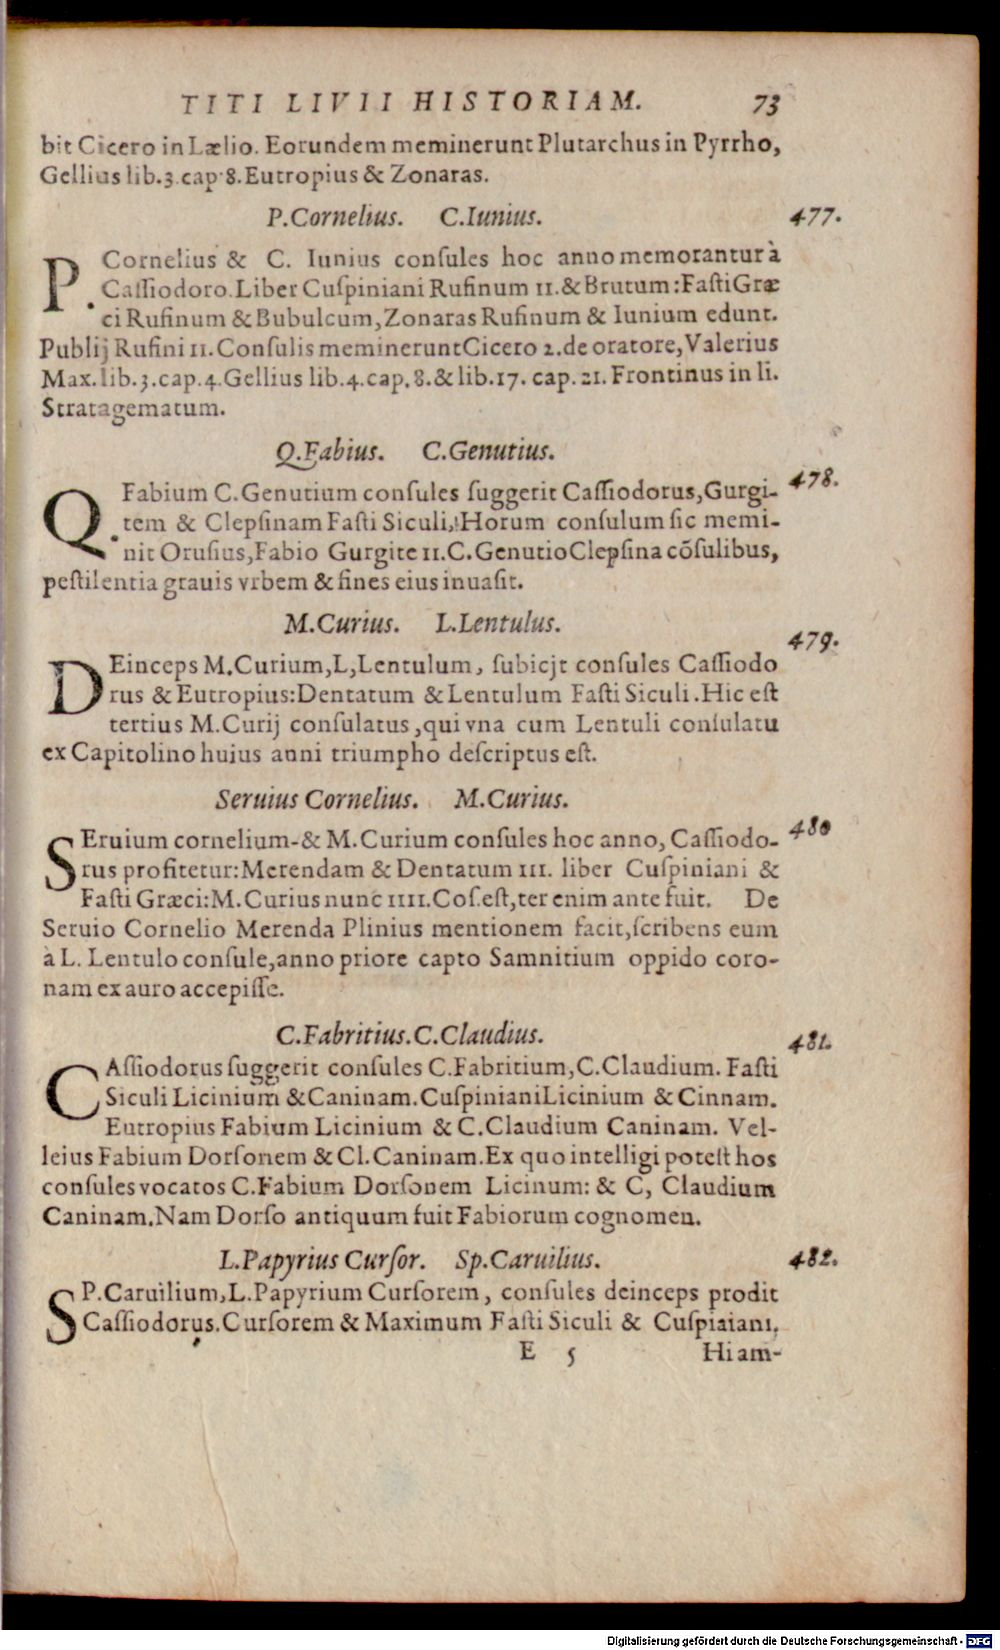 TITI LIVII HISTORIAM. 73
bit Cicero in Lælio. Eorundem meminerunt Plutarchus in Pyrrho,
Gellius lib.3.cap.8.Eutropius & Zonaras.
P.Cornelius. C.Iunius. 477.
P. Cornelius & C. Iunius conſules hoc anno memorantur à
Caſſiodoro.Liber Cuſpiniani Rufinum 11.& Brutum:Faſti Græ
ci Rufinum & Bubulcum,Zonaras Rufinum & Iunium edunt.
Publij Rufini 11.Conſulis meminerunt Cicero 2.de oratore,Valerius
Max.lib.3.cap.4.Gellius lib.4.cap.8.& lib.17. cap.21.Frontinus in li.
Stratagematum.
Q.Fabius. C.Genutius.
Q. Fabium C.Genutium conſules ſuggerit Caſſiodorus,Gurgi- 478.
tem & Clepſinam Faſti Siculi,Horum conſulum ſic memi-
nit Oruſius,Fabio Gurgite 11.C.Genutio Clepſina cõſulibus,
peſtilentia grauis vrbem & fines eius inuaſit.
M.Curius. L.Lentulus. 479.
DEinceps M.Curium,L,Lentulum, ſubicjt conſules Caſſiodo
rus & Eutropius:Dentatum & Lentulum Faſti Siculi.Hic eſt
tertius M.Curij conſulatus,qui vna cum Lentuli conſulatu
ex Capitolino huius anni triumpho deſcriptus eſt.
Seruius Cornelius. M.Curius.
SEruium cornelium-& M.Curium conſules hoc anno, Caſſiodo- 480
rus profitetur:Merendam & Dentatum 111. liber Cuſpiniani &
Faſti Græci:M.Curius nunc 1111.Coſ.eſt,ter enim ante fuit. De
Seruio Cornelio Merenda Plinius mentionem facit,ſcribens eum
à L. Lentulo conſule,anno priore capto Samnitium oppido coro-
nam ex auro accepiſſe.
C.Fabritius.C.Claudius. 481.
CAſſiodorus ſuggerit conſules C.Fabritium,C.Claudium. Faſti
Siculi Licinium & Caninam.Cuſpiniani Licinium & Cinnam.
Eutropius Fabium Licinium & C.Claudium Caninam. Vel-
leius Fabium Dorſonem & Cl.Caninam.Ex quo intelligi poteſt hos
conſules vocatos C.Fabium Dorſonem Licinum: & C, Claudium
Caninam.Nam Dorſo antiquum fuit Fabiorum cognomen.
L.Papyrius Curſor. Sp.Caruilius. 482.
SP.Caruilium,L.Papyrium Curſorem, conſules deinceps prodit
Caſſiodorus.Curſorem & Maximum Faſti Siculi & Cuſpiaiani,
E 5 Hi am-
Digitalisierung gefördert durch die Deutsche Forschungsgemeinschaft - DFG